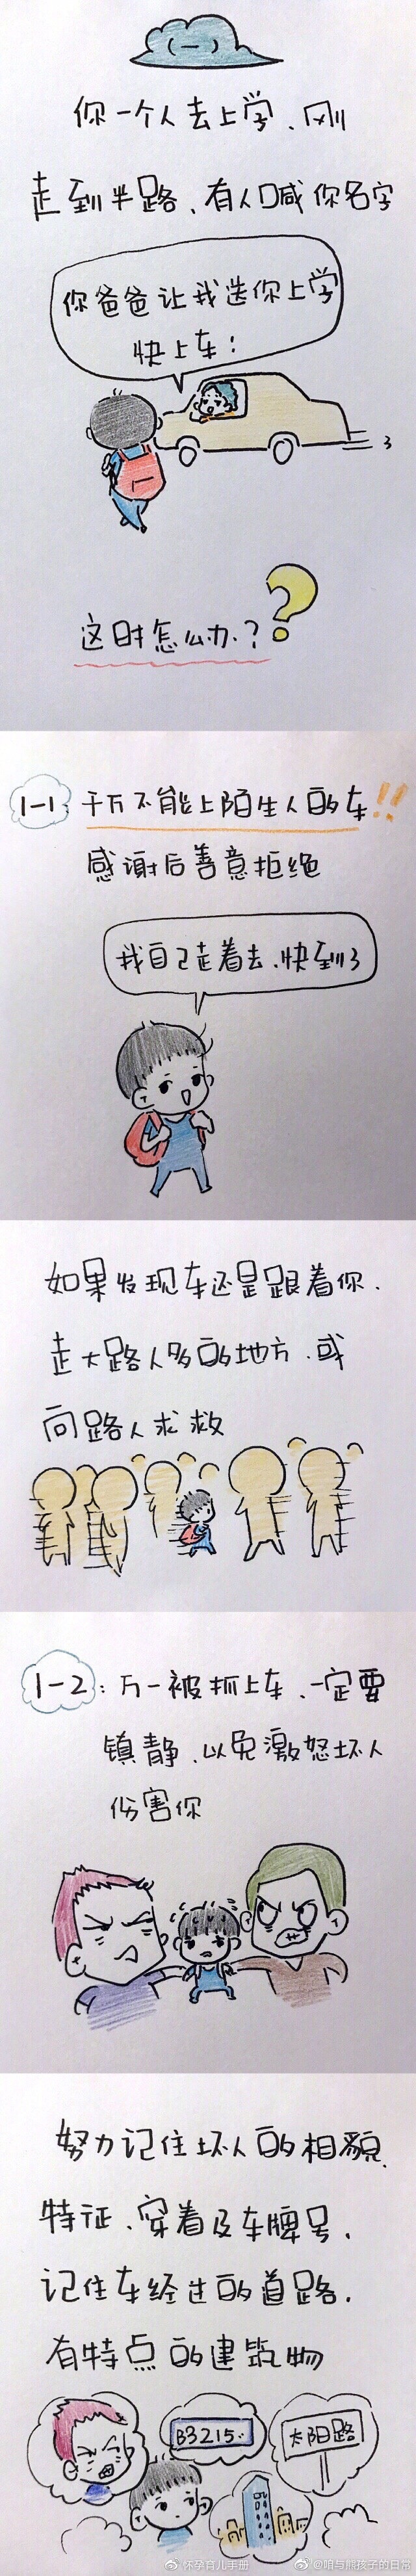 (一)
你一个人去上学、刚
走到半路、有人喊你名字
你爸爸让我送你上学
快上车!
这时怎么办.??
1-1 千万不能上陌生人的车!!
感谢后善意拒绝
我自己走着去、快到了
如果发现车还是跟着你.
走大路人多的地方.或
向路人求救
1-2: 万一被抓上车、一定要
镇静、以免激怒坏人
伤害你
努力记住坏人的相貌、
特征、穿着及车牌号、
记住车经过的道路.
有特点的建筑物
B3215..
太阳路
怀孕育儿手册
@咱与熊孩子的日常